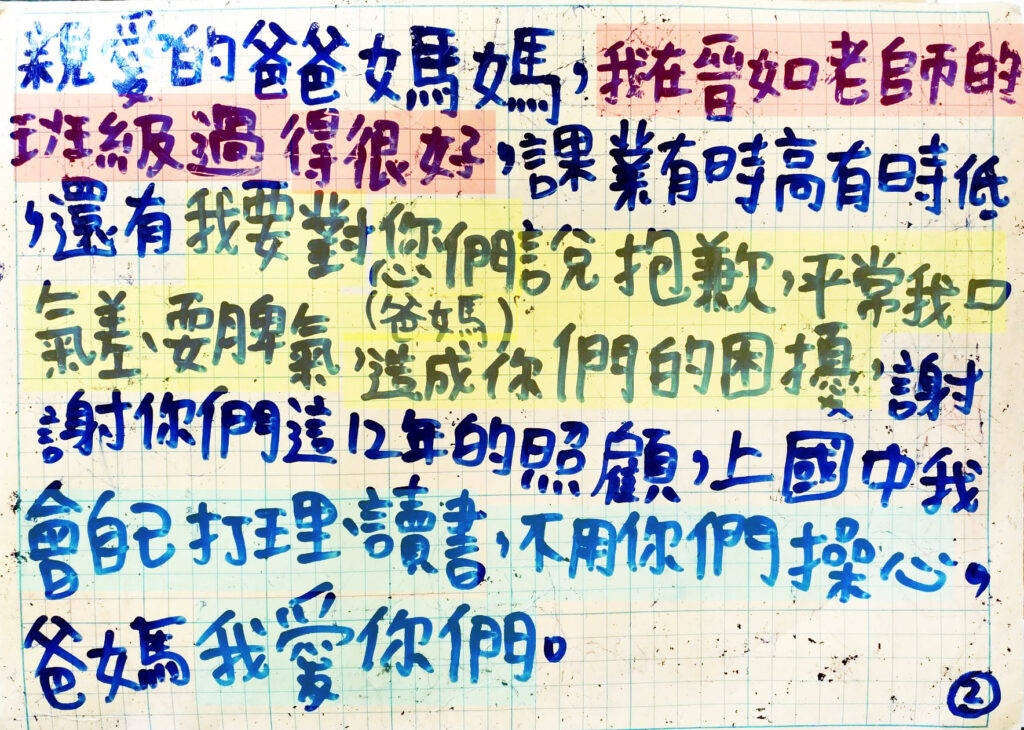 親愛的爸爸媽媽，我在晉如老師的
班級過得很好，課業有時高有時低
，還有我要對您們說抱歉，平常我口
(爸媽)
氣差、耍脾氣，造成你們的困擾，謝
謝你們這12年的照顧，上國中我
會自己打理、讀書，不用你們操心，
爸媽我愛你們。
②